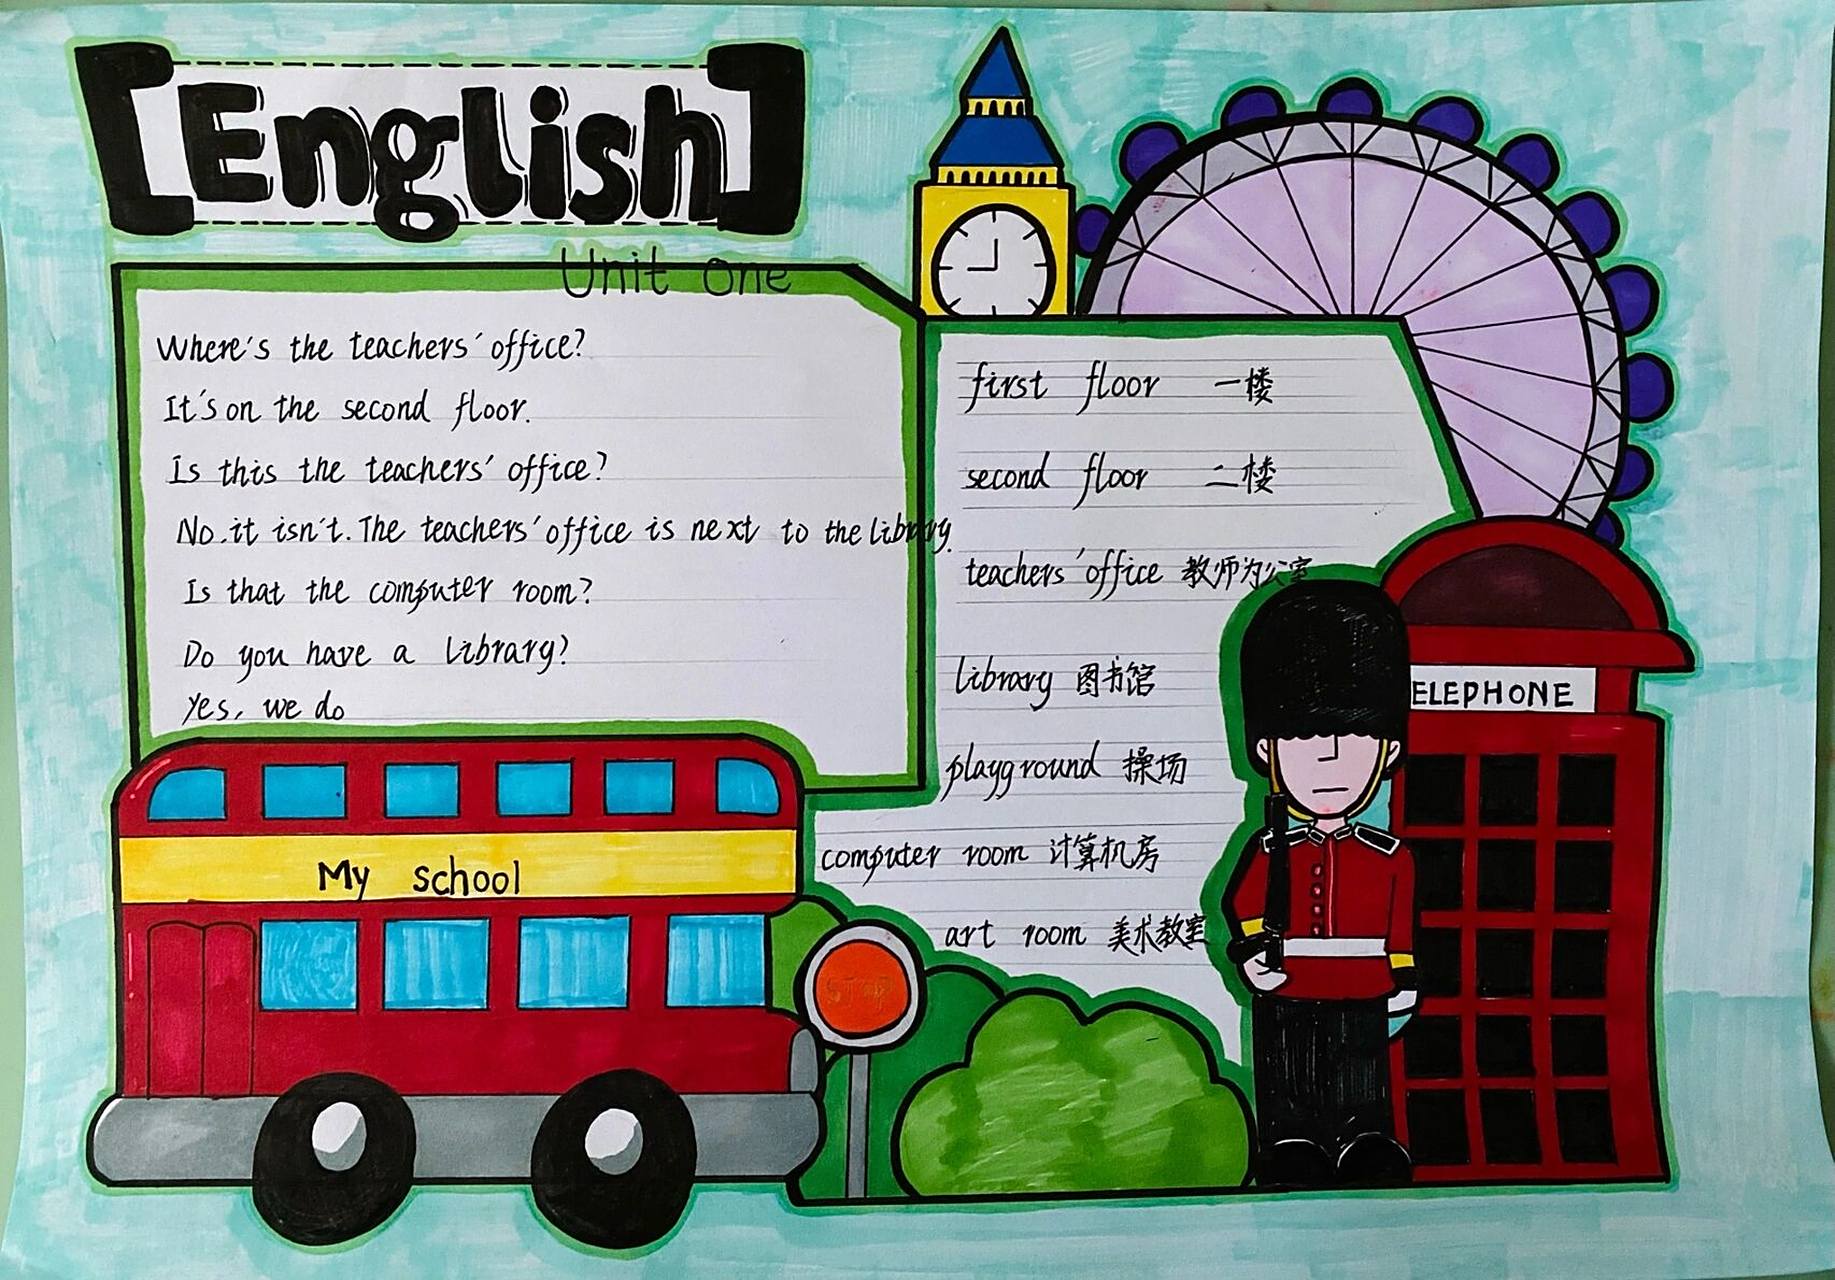 English
Unit One
Where's the teachers' office?
It's on the second floor.
Is this the teachers' office?
No. it isn't. The teachers' office is next to the library.
Is that the computer room?
Do you have a library?
Yes, we do
first floor 一楼
second floor 二楼
teachers' office 教师办公室
library 图书馆
playground 操场
computer room 计算机房
art room 美术教室
My school
STOP
ELEPHONE